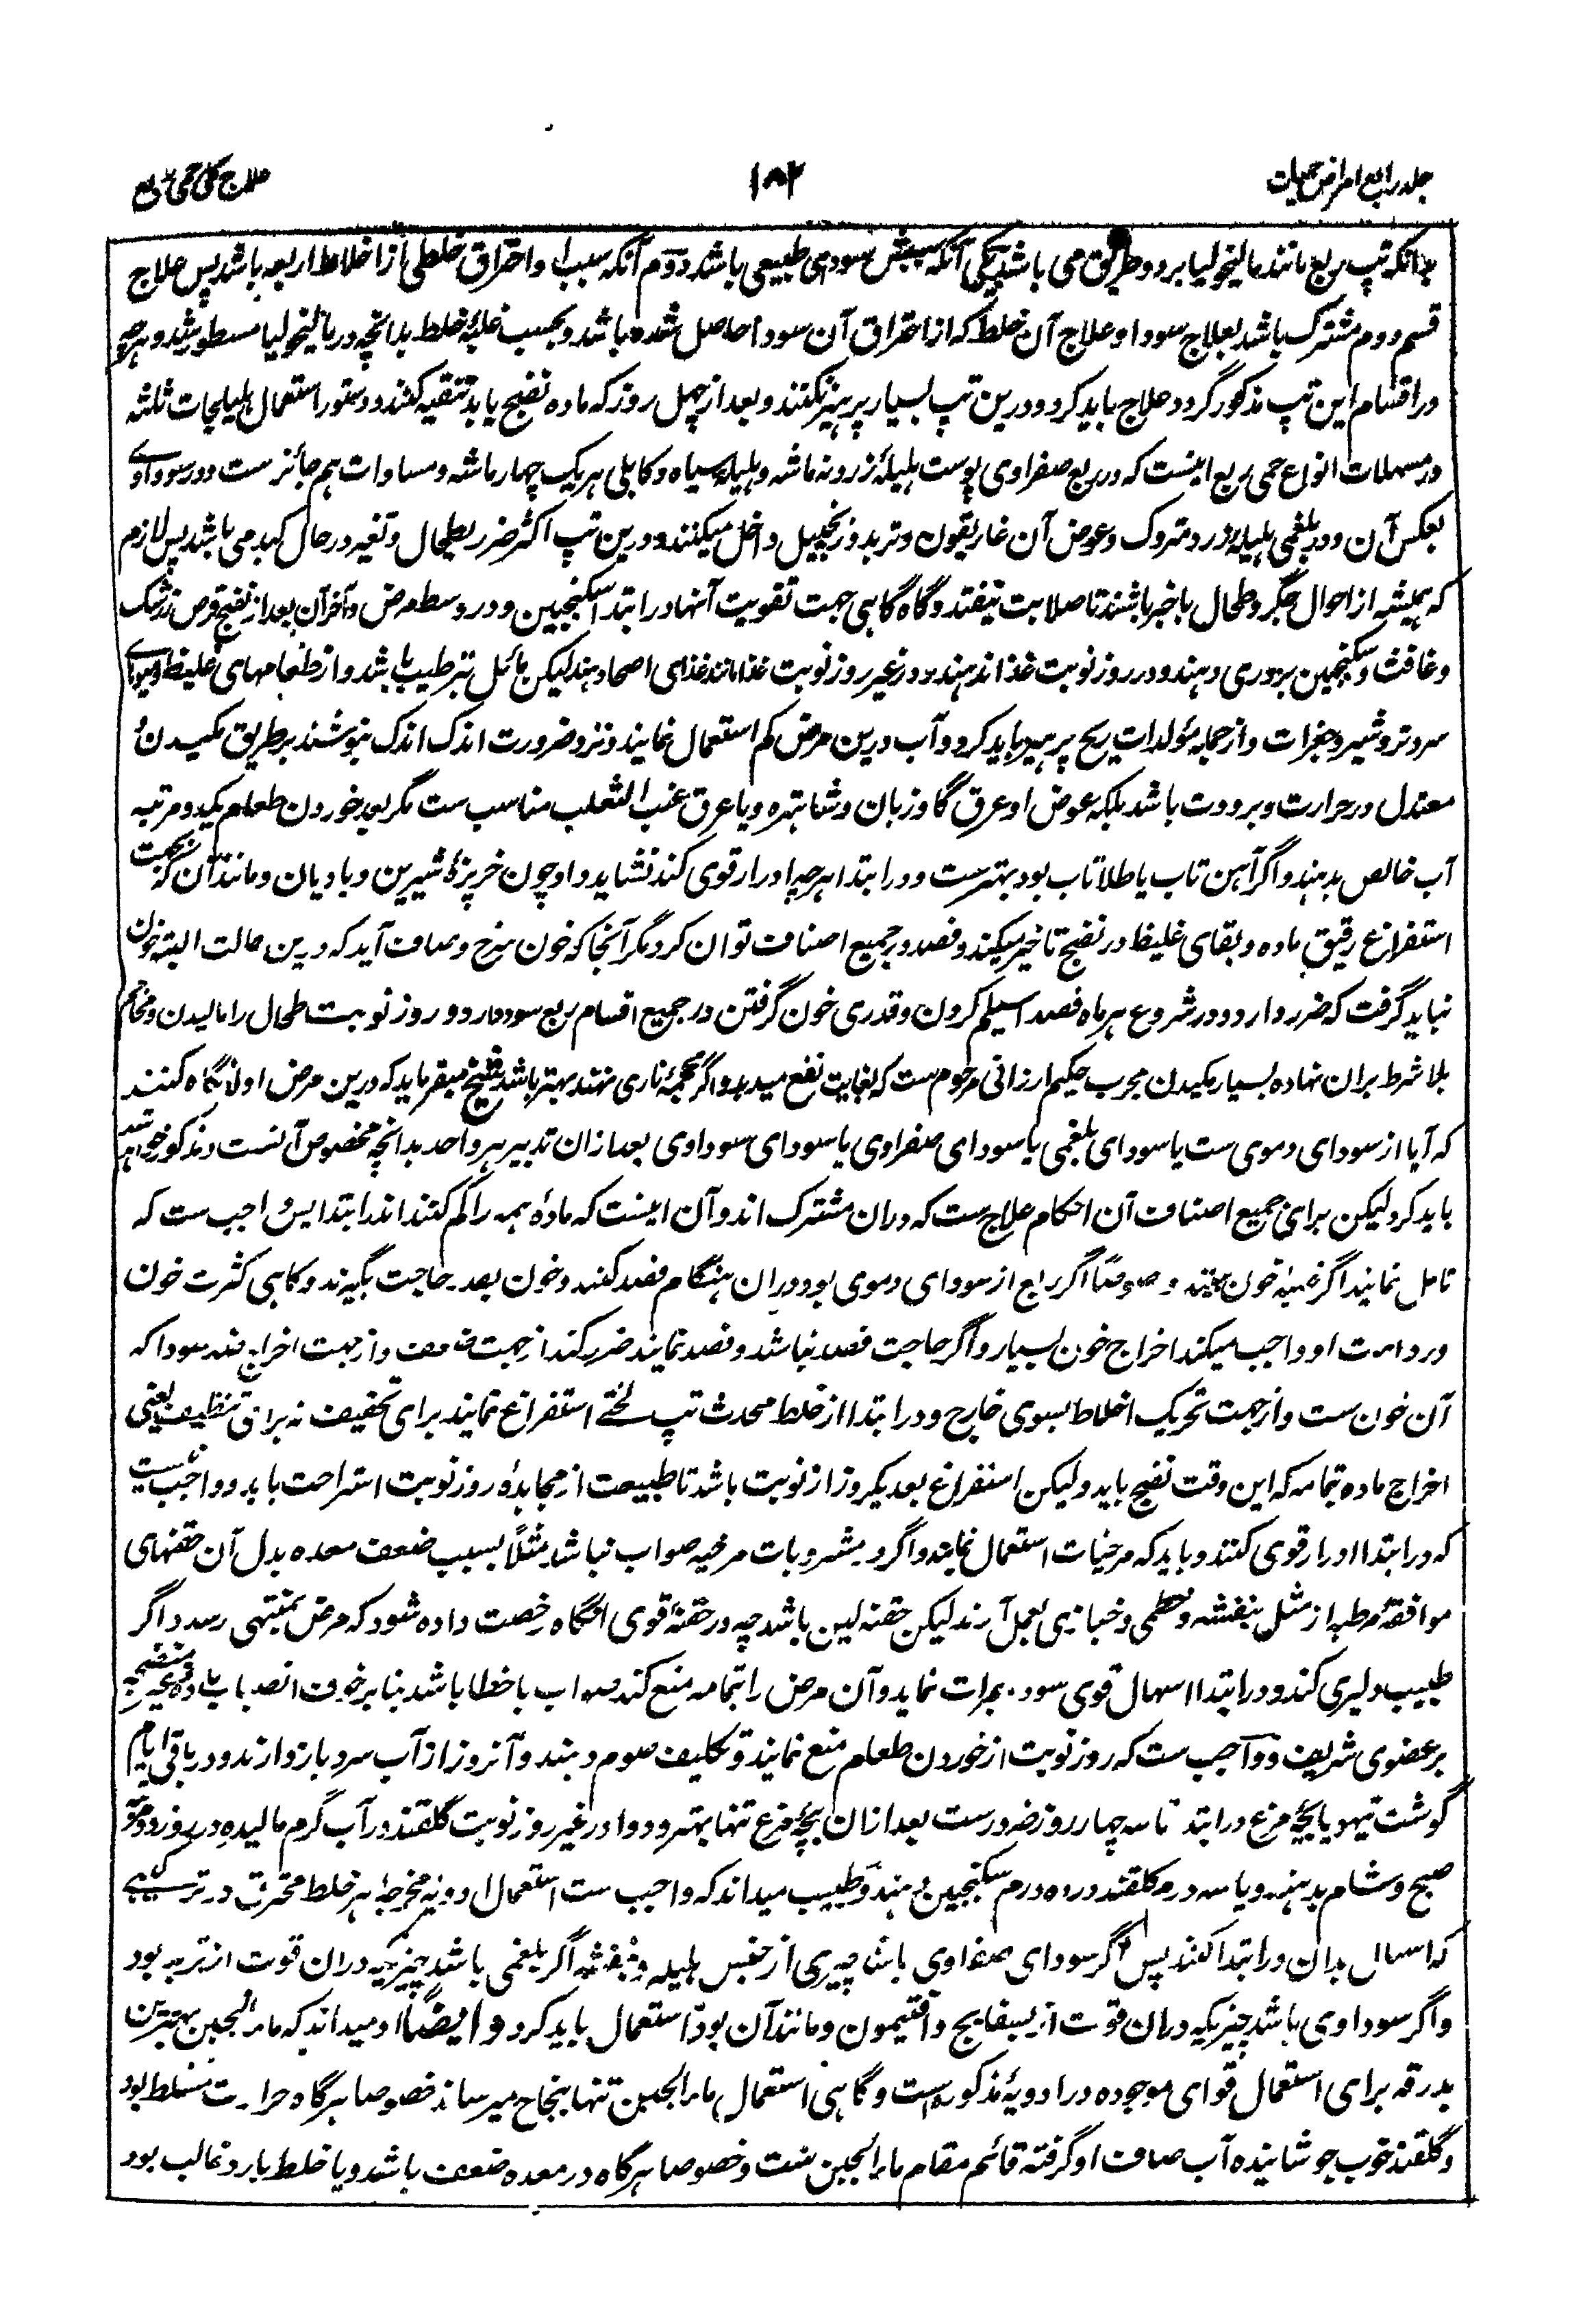 جلد رابع امراض حمیات
۱۸۲
علاج کلی حمی ربع
بدانکه تپ ربع مانند مالیخولیا بر دو طریق می باشد یکی آنکه سببش سودای طبیعی باشد دوم آنکه سبب او احتراق خلطی از اخلاط اربعه باشد پس علاج
قسم دوم مشترک باشد بعلاج سودا و علاج آن خلط که از احتراق آن سودا حاصل شده باشد و بحسب غلبهٔ خلط بدانچه در مالیخولیا مسطور شد و هرچه
در اقسام این تپ مذکور گردد علاج باید کرد و درین تپ بسیار پرهیز نکنند و بعد از چهل روز که ماده نضج یابد تنقیه کنند و دستور استعمال هلیلجات ثلثه
در مسهلات انواع حمی ربع اینست که در ربع صفراوی پوست هلیلهٔ زرد نه ماشه و هلیلهٔ سیاه و کابلی هر یک چهار ماشه و مساوات هم جائز ست و در سوداوی
بعکس آن و در بلغمی هلیلهٔ زرد متروک و عوض آن غاریقون و تربد و زنجبیل داخل میکنند و درین تپ اکثر ضرر بطحال و تغیر در حال کبد می باشد پس لازم
که همیشه از احوال جگر و طحال باخبر باشند تا صلابت نیفتد و گاه گاهی جهت تقویت آنها در ابتدا سکنجبین و در وسط مرض و آخر آن بعد از نضج قرص زرشک
و غافث و سکنجبین بزوری دهند و در روز نوبت غذا ندهند و در غیر روز نوبت غذا مانند غذای اصحا دهند لیکن مائل بترطیب باشد و از طعامهای غلیظ و میوهای
سرد تر و شیر و جغرات و از جمله مولدات ریح پرهیز باید کرد و آب درین مرض کم استعمال نمایند و نزد ضرورت اندک اندک بنوشند بطریق مکیدن و
معتدل در حرارت و برودت باشد بلکه عوض او عرق گاوزبان و شاهتره و یا عرق عنب الثعلب مناسب ست مگر بعد خوردن طعام یک دو مرتبه
آب خالص بدهند و اگر آهن تاب یا طلا تاب بود بهتر ست و در ابتدا هرچه ادرار قوی کند نشاید داد چون خربزهٔ شیرین و بادیان و مانند آن که بجهت
استفراغ رقیق ماده و بقای غلیظ در نضج تاخیر میکند و فصد در جمیع اصناف توان کرد مگر آنجا که خون سرخ و صاف آید که درین حالت البته خون
نباید گرفت که ضرر دارد و در شروع هر ماه فصد اسیلم کردن و قدری خون گرفتن در جمیع اقسام ربع سود دارد و روز نوبت طحال را مالیدن و محاجم
بلا شرط بران نهاده بسیار مکیدن مجرب حکیم ارزانی مرحوم ست که بغایت نفع میدهد و اگر محجمهٔ ناری نهند بهتر باشد شیخ میفرماید که درین مرض اولا نگاه کنند
که آیا از سودای دموی ست یا سودای بلغمی یا سودای صفراوی یا سودای سوداوی بعد ازان تدبیر هر واحد بدانچه مخصوص آنست و مذکور خواهد شد
باید کرد لیکن برای جمیع اصناف آن احکام علاج ست که دران مشترک اند و آن اینست که مادهٔ همه را کم کنند اندر ابتدا پس واجب ست که
تامل نمایند اگر غلبهٔ خون بینند و خصوصاً اگر ربع از سودای دموی بود دران هنگام فصد کنند و خون بقدر حاجت بگیرند و گاهی کثرت خون
و رداءت او واجب میکند اخراج خون بسیار و اگر حاجت فصد نباشد و فصد نمایند ضرر کند از جهت ضعف و از جهت اخراج ضد سودا که
آن خون ست و از جهت تحریک اخلاط بسوی خارج و در ابتدا از خلط محدث تپ لختے استفراغ نمایند برای تخفیف نه برای تنظیف یعنی
اخراج ماده بتمامه که این وقت نضج باید و لیکن استفراغ بعد یکروز از نوبت باشد تا طبیعت از مجاهدهٔ روز نوبت استراحت یابد و واجب نیست
که در ابتدا ادرار قوی کنند و باید که مرخیات استعمال نمایند و اگر مشروبات مرخیه صواب نباشد مثلاً بسبب ضعف معده بدل آن حقنهای
موافقهٔ مرطبه از مثل بنفشه و خطمی و خبازی بعمل آرند لیکن حقنه لین باشد چه در حقنهٔ قوی آنگاه رخصت داده شود که مرض بمنتهی رسد و اگر
طبیب دلیری کند و در ابتدا اسهال قوی سود بمرات نماید و آن مرض را بتمامه منع کند صواب با خطا باشد بنا بر خوف انصباب ماده غیر منضجه
بر عضوی شریف و واجب ست که روز نوبت از خوردن طعام منع نمایند و تکلیف صوم دهند و آنروز از آب سرد باز دارند و در باقی ایام
گوشت تیهو یا بچهٔ مرغ در ابتدا تا سه چهار روز ضرورست بعد ازان بچهٔ مرغ تنها بهتر و دوا در غیر روز نوبت گلقند در آب گرم مالیده در روز دو مرتبه
صبح و شام بدهند و یا سه درم گلقند در ده درم سکنجبین دهند و طبیب میداند که واجب ست استعمال ادویه مخرجهٔ هر خلط محترق در ترکیبی
که اسهال بدان در ابتدا کنند پس اگر سودای صفراوی باشد چیزی از جنس هلیله و بنفشه اگر بلغمی باشد چیزیکه دران قوت از تربد بود
و اگر سوداوی باشد چیزیکه دران قوت از بسفایج و افتیمون و مانند آن بود استعمال باید کرد و ایضاً او میداند که ماء الجبن بهترین
بدرقه برای استعمال قوای موجوده در ادویهٔ مذکوره است و گاهی استعمال ماء الجبن تنها بنجاح میرساند خصوصا هرگاه حرارت متسلط بود
و گلقند خوب جوشانیده آب صاف او گرفته قائم مقام ماء الجبن ست و خصوصا هرگاه در معده ضعف باشد و یا خلط بارد غالب بود